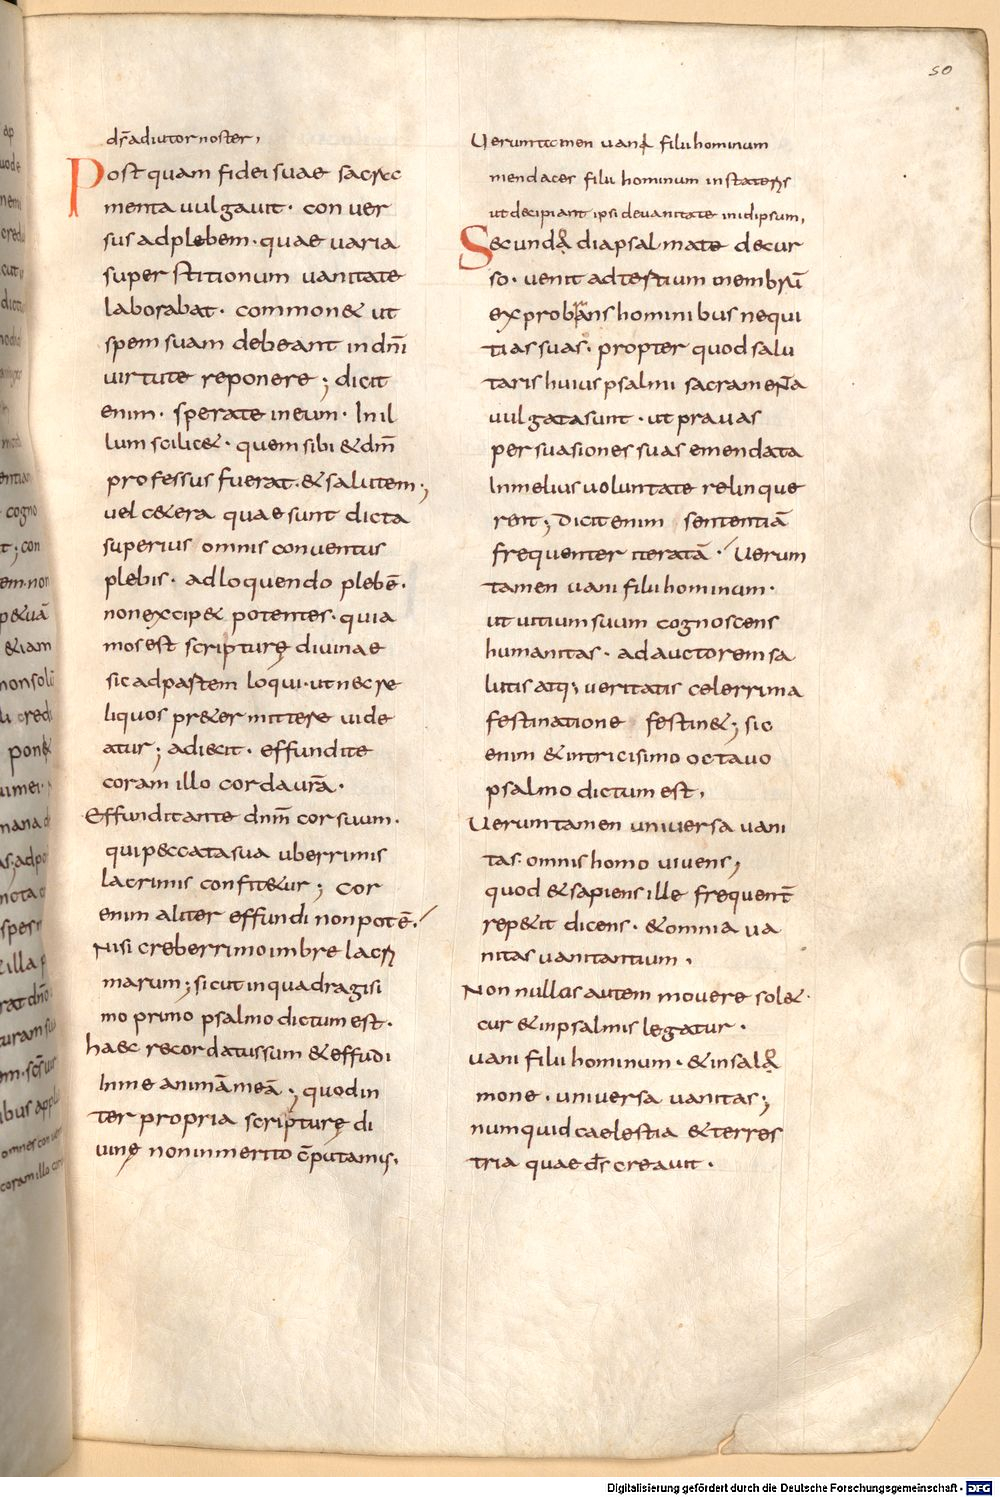 50
dr̄ adiutor noster,
Postquam fidei suae sacra
menta uulgauit· conuer
sus ad plebem· quae uaria
superstitionum uanitate
laborabat· commonet ut
spem suam debeant in dn̄i
uirtute reponere; dicit
enim· sperate in eum· In il
lum scilicet· quem sibi et dm̄
professus fuerat· & salutem;
uel cetera quae sunt dicta
superius omnis conuentus
plebis· adloquendo plebē·
non excipet potentes· quia
mos est scripturę diuinae
sic ad pastem loqui· ut nec re
liquos pretermittere uide
atur; adiecit· effundite
coram illo corda ur̄a·
Effunditante dnm̄ cor suum·
qui peccata sua uberrimis
lacrimis confitetur; cor
enim aliter effundi non potē·
Nisi creberrimo imbre lacri
marum; sicut in quadragisi
mo primo psalmo dictum est·
haec recordatus sum & effudi
In me animā meā; quod in
ter propria scripturę di
uinę non inmerito cōputamis·
Ueruntamen uani filii hominum
mendaces filii hominum in stateris
ut decipiant ipsi de uanitate in idipsum,
Secunda diapsalmate decur
so· uenit ad tertium membrū
exprobrans hominibus nequi
tias suas· propter quod salu
taris huius psalmi sacramenta
uulgata sunt· ut prauas
persuasiones suas emendata
In melius uoluntate relinque
rent; dicit enim sententiā
frequenter iteratā· Uerum
tamen uani filii hominum·
ut uitium suum cognoscens
humanitas· ad auctorem sa
lutis atq; ueritatis celerrima
festinatione festinet; sic
enim & in tricisimo octauo
psalmo dictum est,
Ueruntamen uniuersa uani
tas· omnis homo uiuens;
quod & sapiens ille frequent̄
repetit dicens· & omnia ua
nitas uanitantium·
Non nullos autem mouere solet·
cur & in psalmis legatur·
uani filii hominum· & in salo
mone· uniuersa uanitas;
numquid caelestia & terres
tria quae ds̄ creauit·
Digitalisierung gefördert durch die Deutsche Forschungsgemeinschaft - DFG